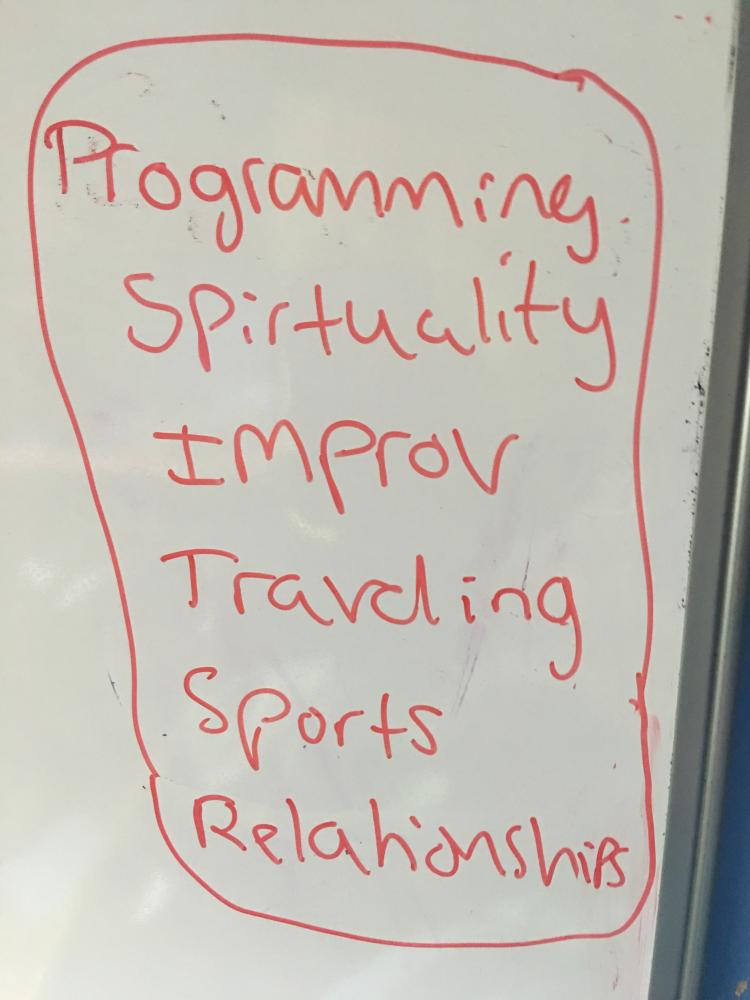 Programming.
Spirtuality
Improv
Traveling
Sports
Relationships